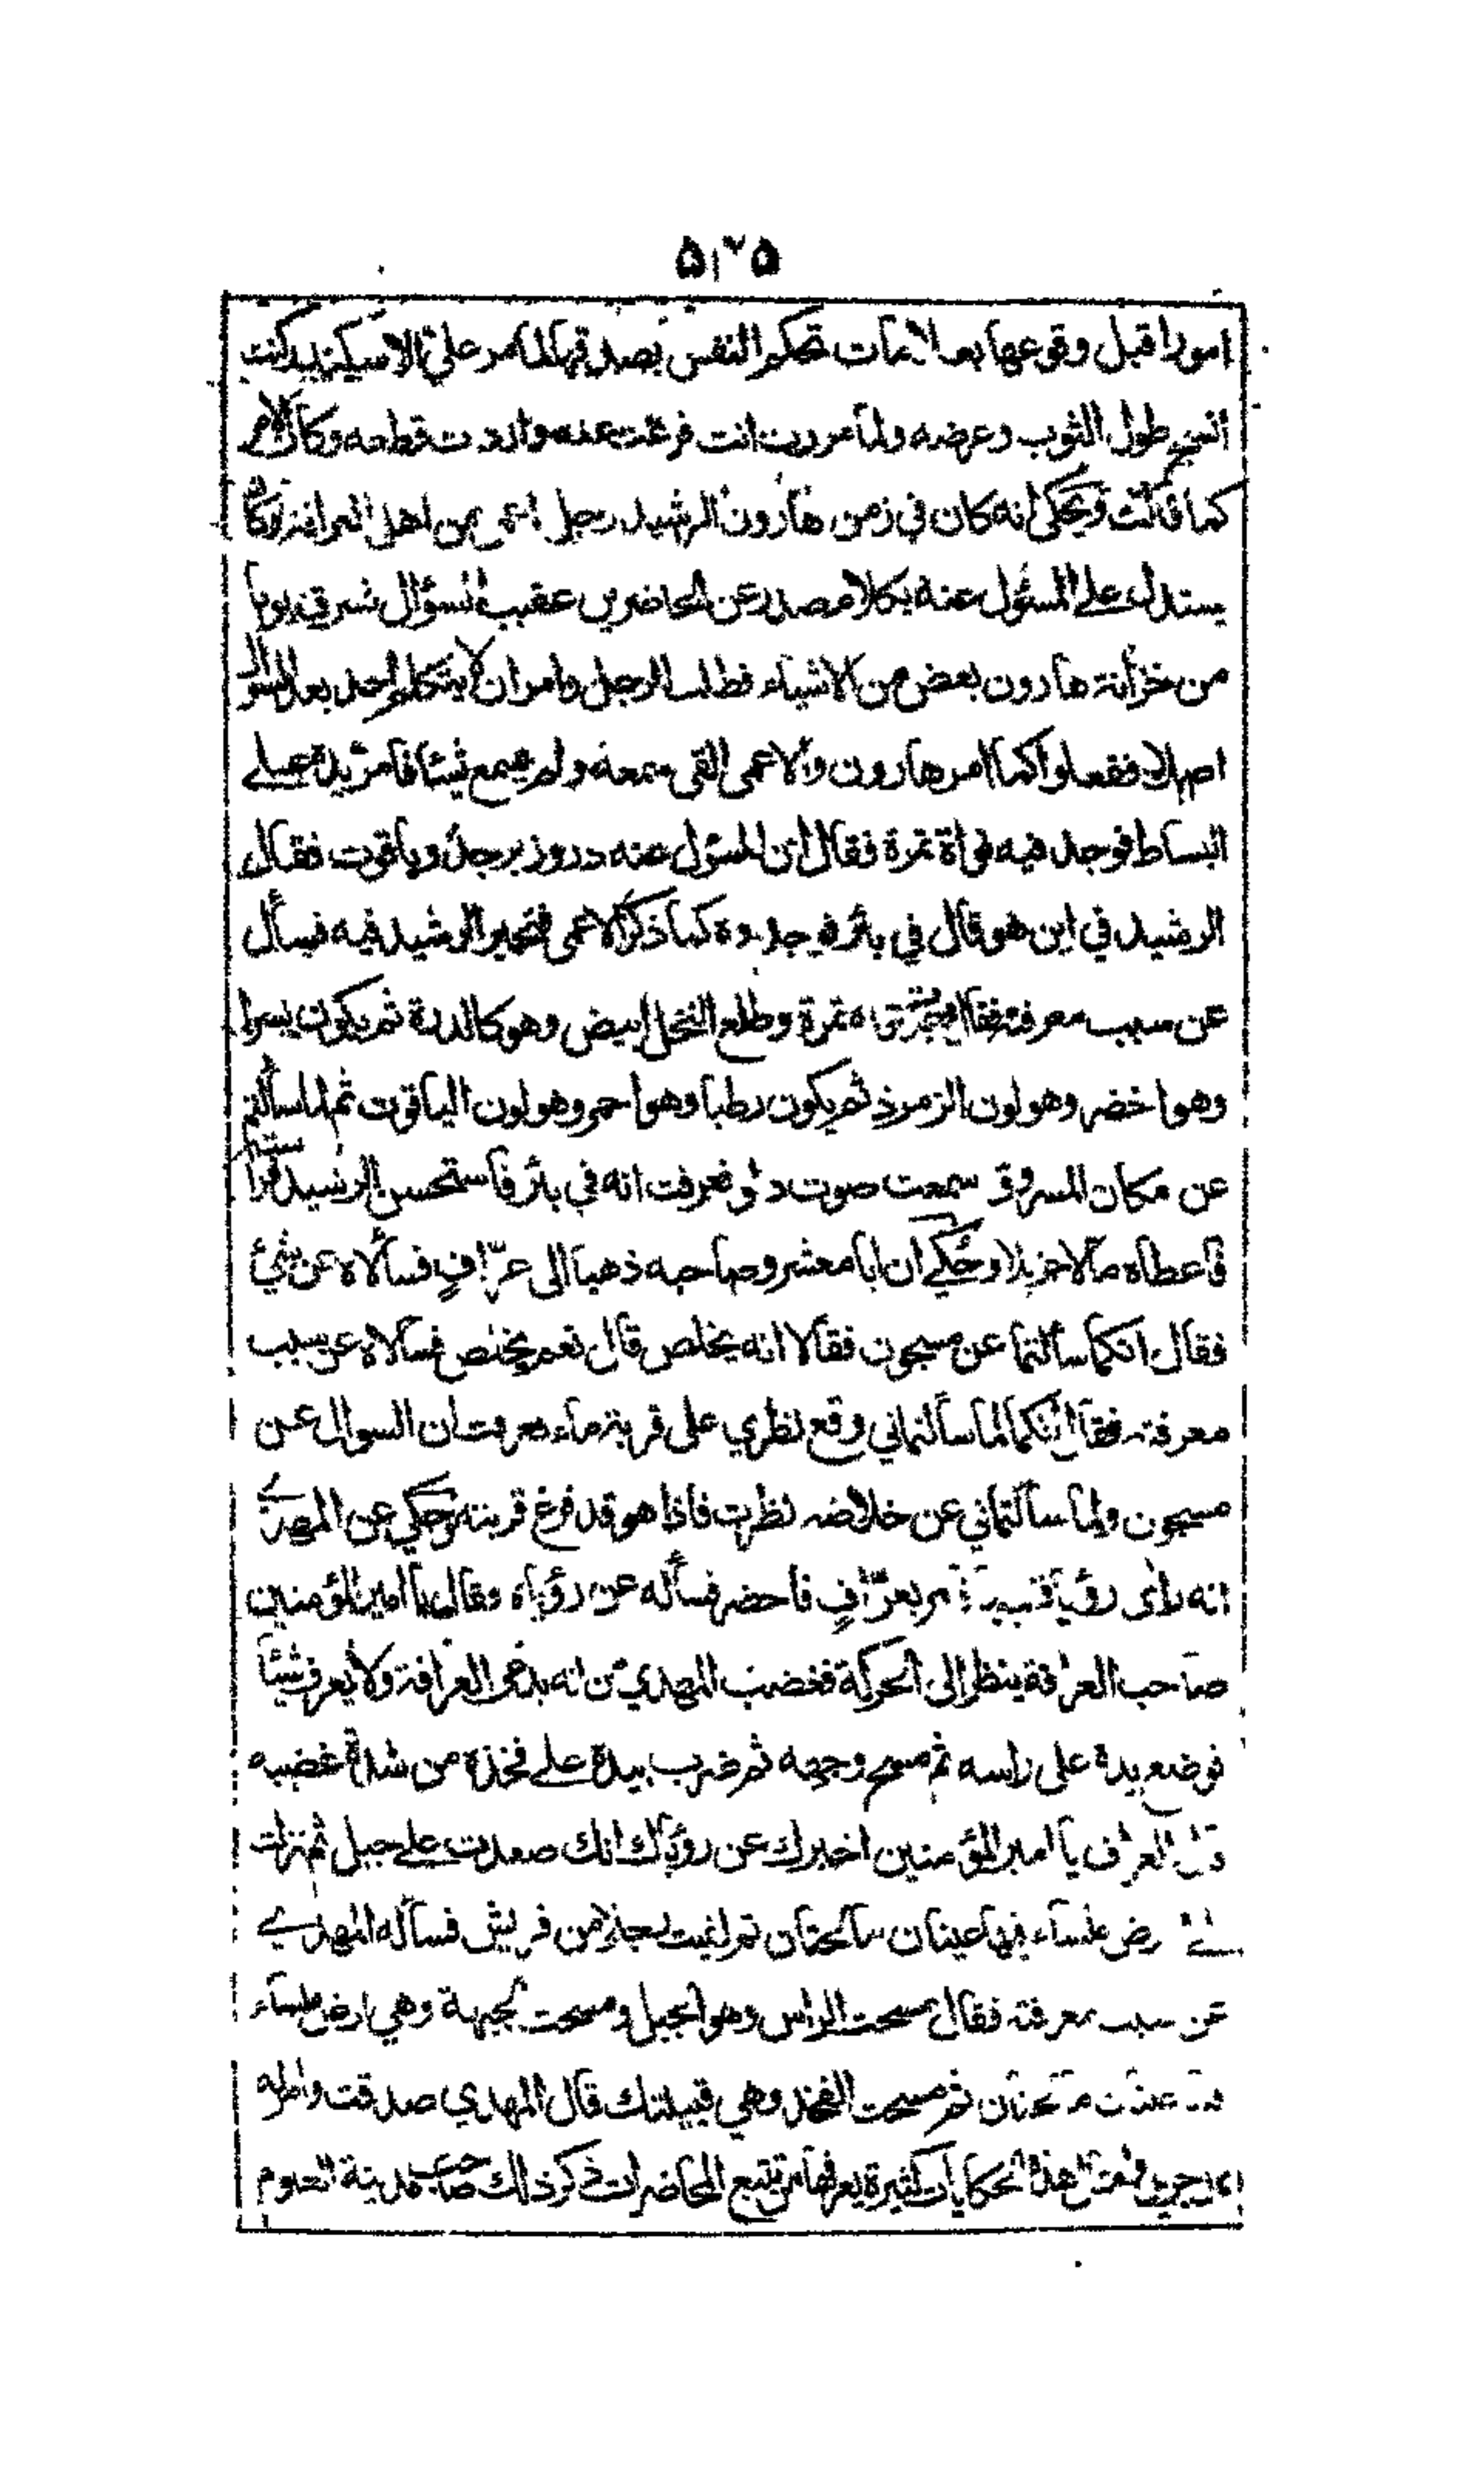 ۵۲۵
امورا قبل وقوعها بعلامات تحكم النفس بصدقها لما مر علي الاسكندر كنت
انسج طول الثوب وعرضه ولما مررت انت فرغت عنه واردت قطعه وكان الامر
كما قالت ويحكى انه كان في زمن هارون الرشيد رجل اعمى من اهل العرافة وكان
يستدل على المسئول عنه بكلام صدر عن الحاضرين عقيب السؤال فسرق يوما
من خزانة هارون بعض من الاشياء فطلب الرجل وامر ان لا يتكلم احد بعد السؤال
اصلا ففعلوا كما امر هارون والاعمى القى سمعه ولم يسمع شيئا فامر يده على
البساط فوجد فيه نواة تمرة فقال ان المسئول عنه در وزبرجد وياقوت فقال
الرشيد في اين هو قال في بئر فوجدوه كما ذكر الاعمى فتحير الرشيد فيه فسأل
عن سبب معرفته فقال وجدت نواة تمرة وطلع النخل ابيض وهو كالدرة ثم يكون بسرا
وهو اخضر وهو لون الزمرذ ثم يكون رطبا وهو احمر وهو لون الياقوت ثم لما سألتم
عن مكان المسروق سمعت صوت دلو فعرفت انه في بئر فاستحسن الرشيد فراسته
فاعطاه مالا جزيلا وحكي ان ابا معشر وصاحبه ذهبا الى عرّافٍ فسألاه عن شئ
فقال انكما سألتما عن مسجون فقالا انه يخلص قال نعم يخلص فسألاه عن سبب
معرفته فقال انكما لما سألتماني وقع نظري على قربة ماء فعرفت ان السوال عن
مسجون ولما سألتماني عن خلاصه نظرت فاذا هو قد فرغ قربته وحكي عن المهدي
انه راى رؤيا بعرّافٍ فاحضر فسأله عن رؤياه فقال يا امير المؤمنين
صاحب العرافة ينظر الى الحركة فغضب المهدي من انه يدعى العرافة ولا يعرف شيئا
فوضع يده على راسه ثم مسح وجهه ثم ضرب بيده على فخذه من شدة غضبه
قال العراف يا امير المؤمنين اخبرك عن رؤياك انك صعدت على جبل ثم نزلت
الى ارض ملساء فيها عينان مالحتان ثم لقيت رجلا من قريش فسأله المهدي
عن سبب معرفته فقال مسحت الراس وهو الجبل ومسحت الجبهة وهي ارض ملساء
مالحتان ثم مسحت الفخذ وهي قبيلتك قال المهدي صدقت وامر له
هذه الحكايات كثيرة يعرفها من تتبع المحاضرات ذكر ذلك صاحب مدينة العلوم